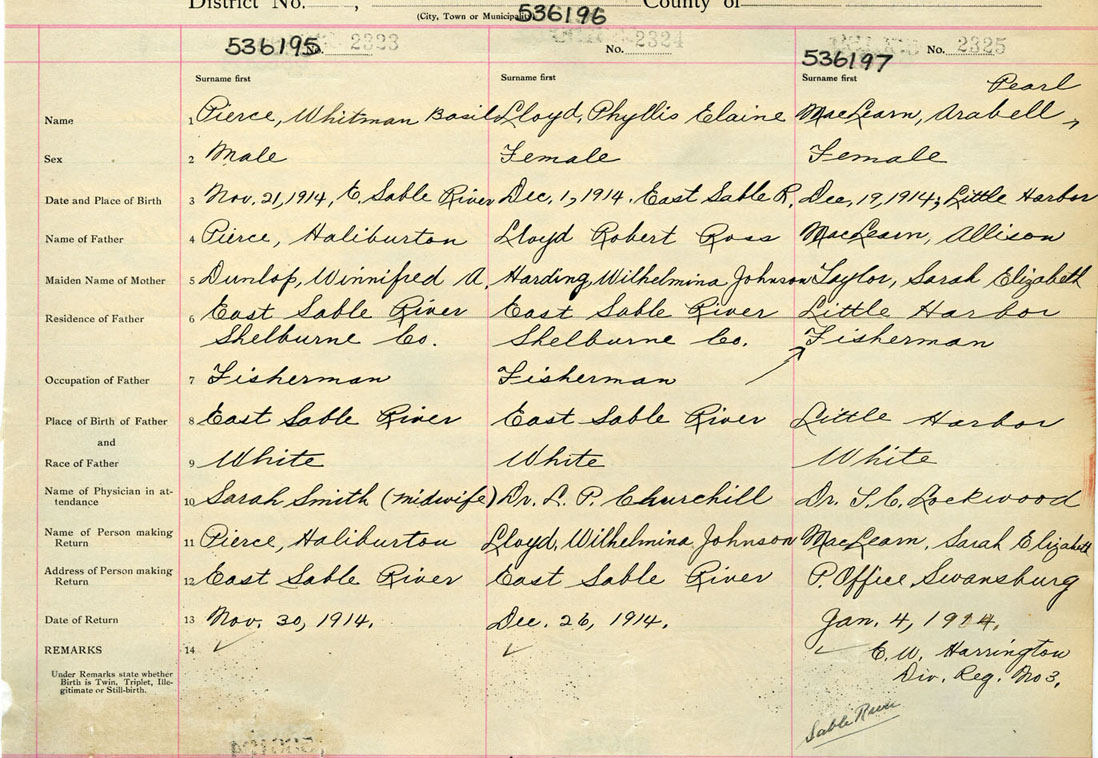 District No. , County of
(City, Town or Municipality)
536195 No. 2323
536196 No. 2324
536197 No. 2325
Surname first Surname first Surname first
Pearl
Name 1 Pierce, Whitman Basil Lloyd, Phyllis Elaine MacLearn, Arabell,
Sex 2 Male Female Female
Date and Place of Birth 3 Nov. 21, 1914, E. Sable River Dec. 1, 1914. East Sable R. Dec. 19, 1914; Little Harbor
Name of Father 4 Pierce, Haliburton Lloyd Robert Ross MacLearn, Allison
Maiden Name of Mother 5 Dunlop, Winnifred A. Harding, Wilhelmina Johnson Taylor, Sarah Elizabeth
Residence of Father 6 East Sable River East Sable River Little Harbor
Shelburne Co. Shelburne Co. Fisherman
Occupation of Father 7 Fisherman Fisherman
Place of Birth of Father 8 East Sable River East Sable River Little Harbor
and
Race of Father 9 White White White
Name of Physician in at-
tendance 10 Sarah Smith (midwife) Dr. L. P. Churchill Dr. T. C. Lockwood
Name of Person making
Return 11 Pierce, Haliburton Lloyd, Wilhelmina Johnson MacLearn, Sarah Elizabeth
Address of Person making
Return 12 East Sable River East Sable River P. Office Swansburg
Date of Return 13 Nov. 30, 1914. Dec. 26, 1914. Jan. 4, 1914.
REMARKS 14 ✓ ✓ ✓ E. W. Harrington
Under Remarks state whether
Birth is Twin, Triplet, Ille-
gitimate or Still-birth.
Div. Reg. No 3.
Sable River